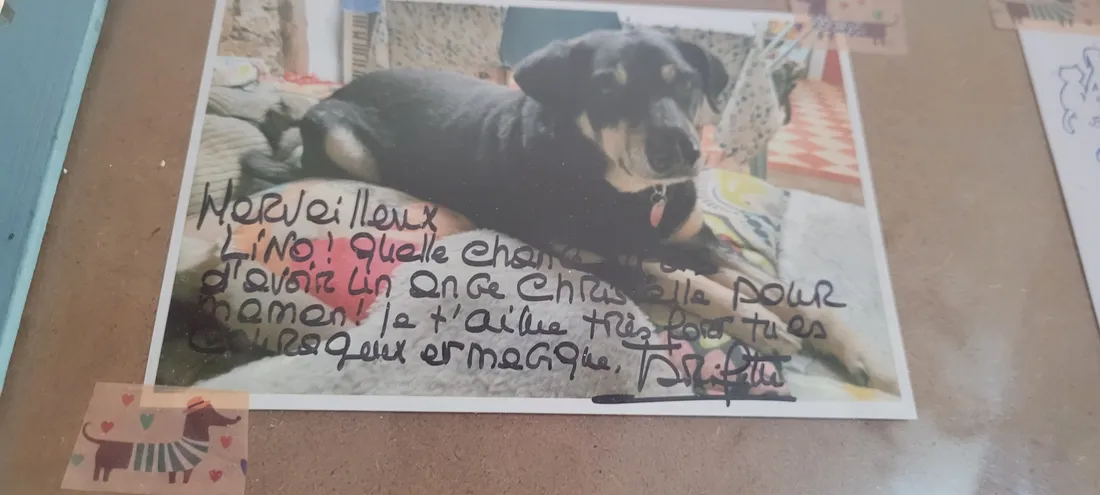 Merveilleux
LiNO! Quelle chance
d'avoir un ange Christelle pour
maman! Je t'aime très fort tu es
courageux et magique.